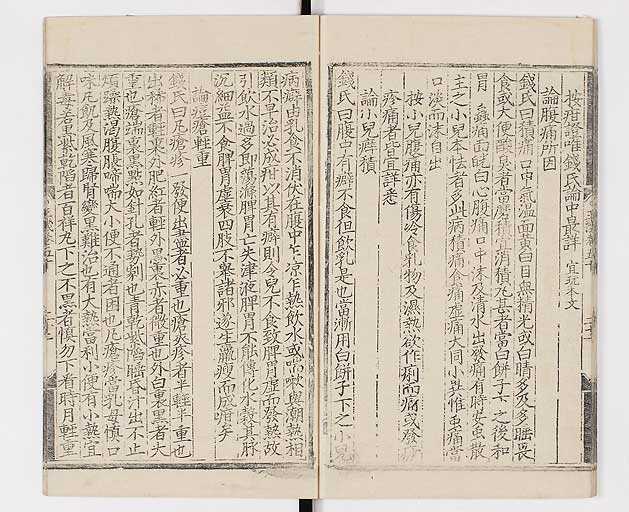 按疳證唯錢氏論中最詳宜玩本文
論腹痛所因
錢氏曰積痛口中氣溫面黃白目無精光或白睛多及多睡畏
食或大便酸臭者當磨積宜消積丸甚者當白餅子下之後和
胃 蟲痛面㿠白心腹痛口中沫及清水出發痛有時安虫散
主之小兒本怯者多此病積痛食痛虛痛大同小異惟虫痛當
口淡而沫自出
按小兒腹痛亦有傷冷食乳物及濕熱欲作痢而痛或發疹
疹痛者皆宜詳悉
論小兒癖積
錢氏曰腹中有癖不食但飲乳是也當漸用白餅子下之小兒
病癖由乳食不消伏在腹中乍凉乍熱飲水或喘嗽與潮熱相
類不早治必成疳以其有癖則令兒不食致脾胃虛而發熱故
引飲水過多即蕩滌脾胃亡失津液脾胃不能傳化水穀其脉
沉細益不食脾胃虛衰四肢不舉諸邪遂生羸瘦而成疳矣
論瘡疹輕重
錢氏曰凡瘡疹一發便出盡者必重也瘡夾疹者半輕半重也
出稀者輕裏外肥紅者輕外黑裏赤者微重也外白裏黑者大
重也瘡端裏黑點如針孔者勢劇也青乾紫陷睡昏汗出不止
煩躁熱渴腹脹啼喘大小便不通者困也凡瘡疹當乳母慎口
味不可飢及風寒歸腎變黑難治也有大熱當利小便有小熱宜
解毒若黑紫乾陷者百祥丸下之不黑者慎勿下看時月輕重